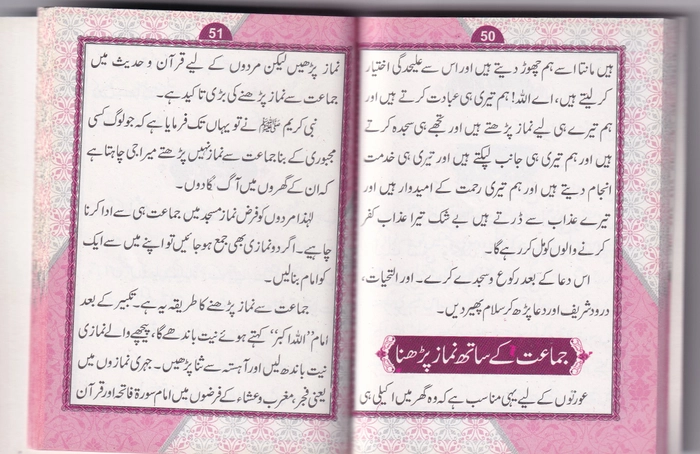 50
ہیں مانتا اسے ہم چھوڑ دیتے ہیں اور اس سے علیحدگی اختیار
کرلیتے ہیں، اے اللہ! ہم تیری ہی عبادت کرتے ہیں اور
ہم تیرے ہی لیے نماز پڑھتے ہیں اور تجھے ہی سجدہ کرتے
ہیں اور ہم تیری ہی جانب لپکتے ہیں اور تیری ہی خدمت
انجام دیتے ہیں اور ہم تیری رحمت کے امیدوار ہیں اور
تیرے عذاب سے ڈرتے ہیں بے شک تیرا عذاب کفر
کرنے والوں کو مل کر رہے گا۔
اس دعا کے بعد رکوع و سجدے کرے۔ اور التحیات،
درود شریف اور دعا پڑھ کر سلام پھیر دیں۔
جماعت کے ساتھ نماز پڑھنا
عورتوں کے لیے یہی مناسب ہے کہ وہ گھر میں اکیلی ہی
51
نماز پڑھیں لیکن مردوں کے لیے قرآن و حدیث میں
جماعت سے نماز پڑھنے کی بڑی تاکید ہے۔
نبی کریم ﷺ نے تو یہاں تک فرمایا ہے کہ جو لوگ کسی
مجبوری کے بنا جماعت سے نماز نہیں پڑھتے میرا جی چاہتا ہے
کہ ان کے گھروں میں آگ لگا دوں۔
لہٰذا مردوں کو فرض نماز مسجد میں جماعت ہی سے ادا کرنا
چاہیے۔ اگر دو نمازی بھی جمع ہو جائیں تو اپنے میں سے ایک
کو امام بنا لیں۔
جماعت سے نماز پڑھنے کا طریقہ یہ ہے۔ تکبیر کے بعد
امام ”اللہ اکبر“ کہتے ہوئے نیت باندھے گا، پیچھے والے نمازی
نیت باندھ لیں اور آہستہ سے ثنا پڑھیں۔ جہری نمازوں میں
یعنی فجر، مغرب و عشاء کے فرضوں میں امام سورۃ فاتحہ اور قرآن